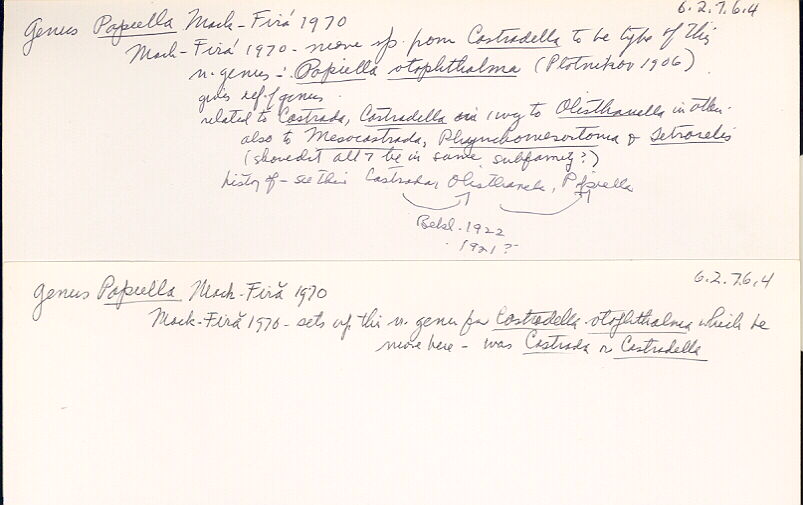 6.2.7.6.4
Genus Popiella Mack-Firă 1970
Mack-Firă 1970 - move sp. from Castradella to be type of this
n. genus : Popiella otophthalma (Plotnikov 1906)
gives ref. of genus.
related to Castrada, Castradella on 1 way to Olisthanella in other.
also to Mesocastrada, Rhynchomesostoma & Tetracelis
(should it all be in same subfamily?)
history of - see this Castrada, Olisthanella, Popiella
Bekl. 1922
1921?
6.2.7.6.4
Genus Popiella Mack-Firă 1970
Mack-Firă 1970 - sets up this n. genus for Castradella otophthalma which he
move here - was Castrada or Castradella